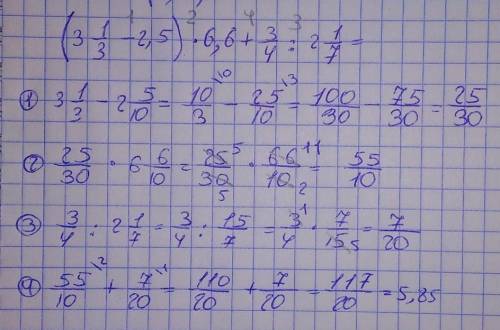 1 2 4 3
(3 1/3 - 2,5) · 6,6 + 3/4 : 2 1/7 =
① 3 1/3 - 2 5/10 = 10/3 \10 - 25/10 \3 = 100/30 - 75/30 = 25/30
② 25/30 · 6 6/10 = 25/30 5 5 · 66/10 11 2 = 55/10
③ 3/4 : 2 1/7 = 3/4 : 15/7 = 3/4 1 · 7/15 5 = 7/20
④ 55/10 \2 + 7/20 \1 = 110/20 + 7/20 = 117/20 = 5,85